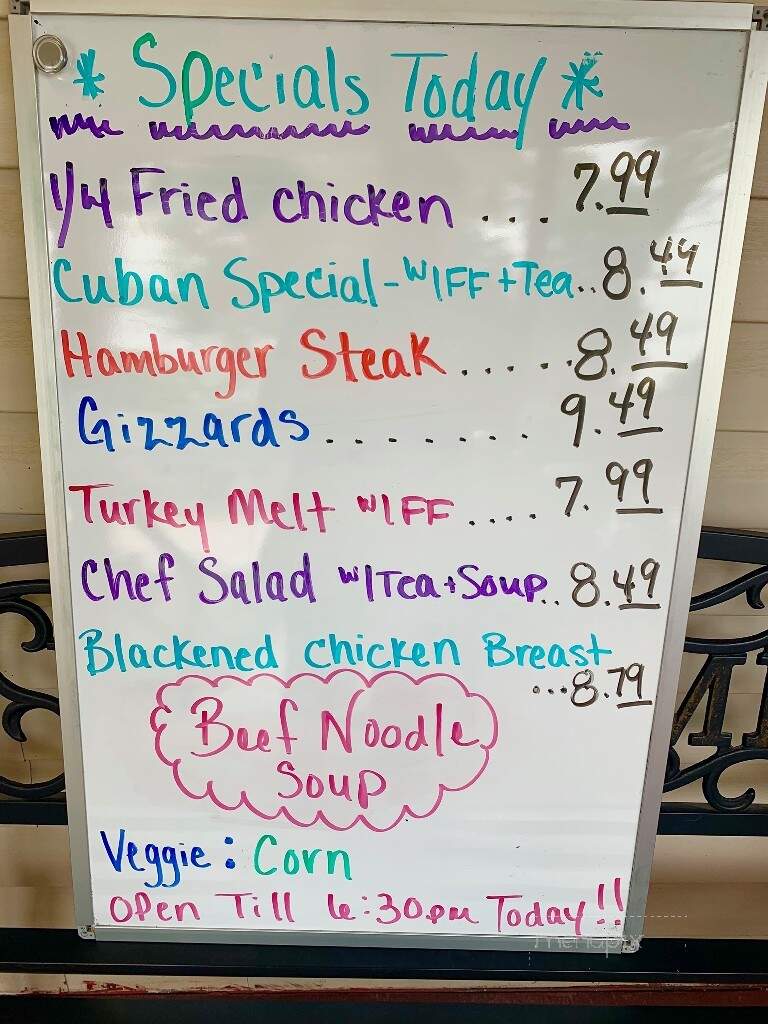 * Specials Today *
1/4 Fried chicken ... 7.99
Cuban Special - W/FF + Tea.. 8.49
Hamburger Steak ..... 8.49
Gizzards ........ 9.49
Turkey Melt W/FF .... 7.99
Chef Salad W/Tea + Soup.. 8.49
Blackened Chicken Breast
... 8.79
Beef Noodle
Soup
Veggie: Corn
Open Till 6:30pm Today!!
menupix